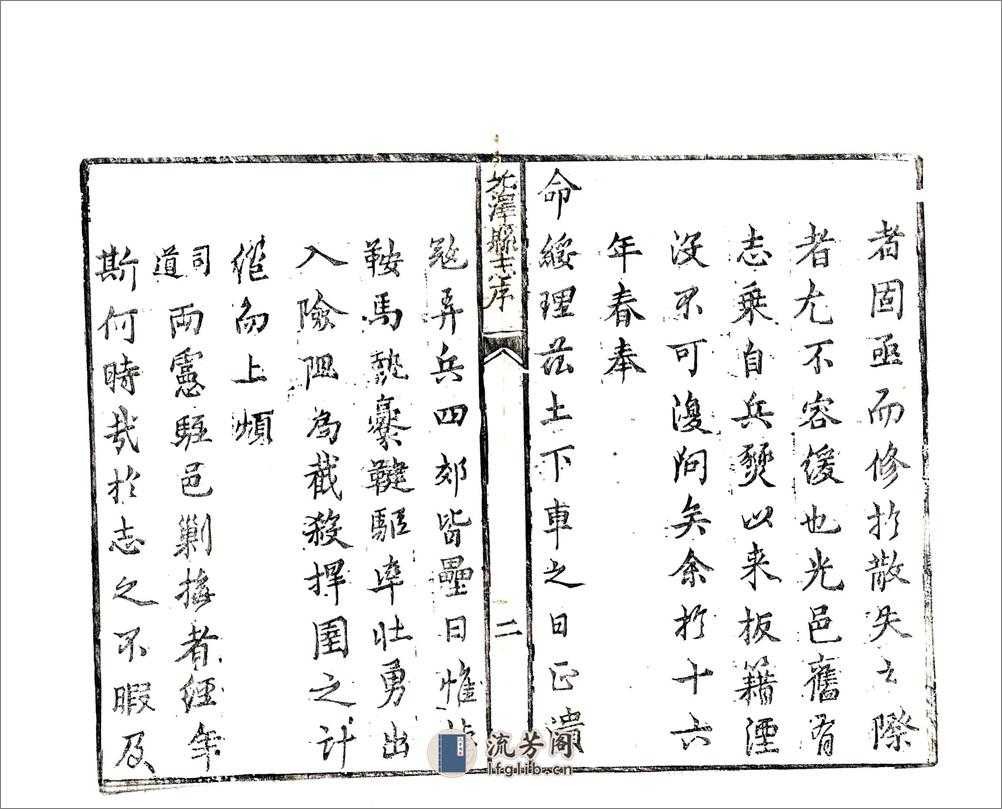 者固亟而修於散失之際
者尤不容緩也光邑舊有
志乘自兵燹以来板籍湮
没不可復问矣余於十六
年春奉
命綏理茲土下車之日正潰
光澤縣志序
二
兵四郊皆壘日惟
鞍馬執櫜鞬驅率壯勇出
入險阻為截殺捍圉之計
催向上煩
司道兩憲駐邑剿撫者經年
斯何時哉於志之不暇及
流芳阁
lfglib.cn